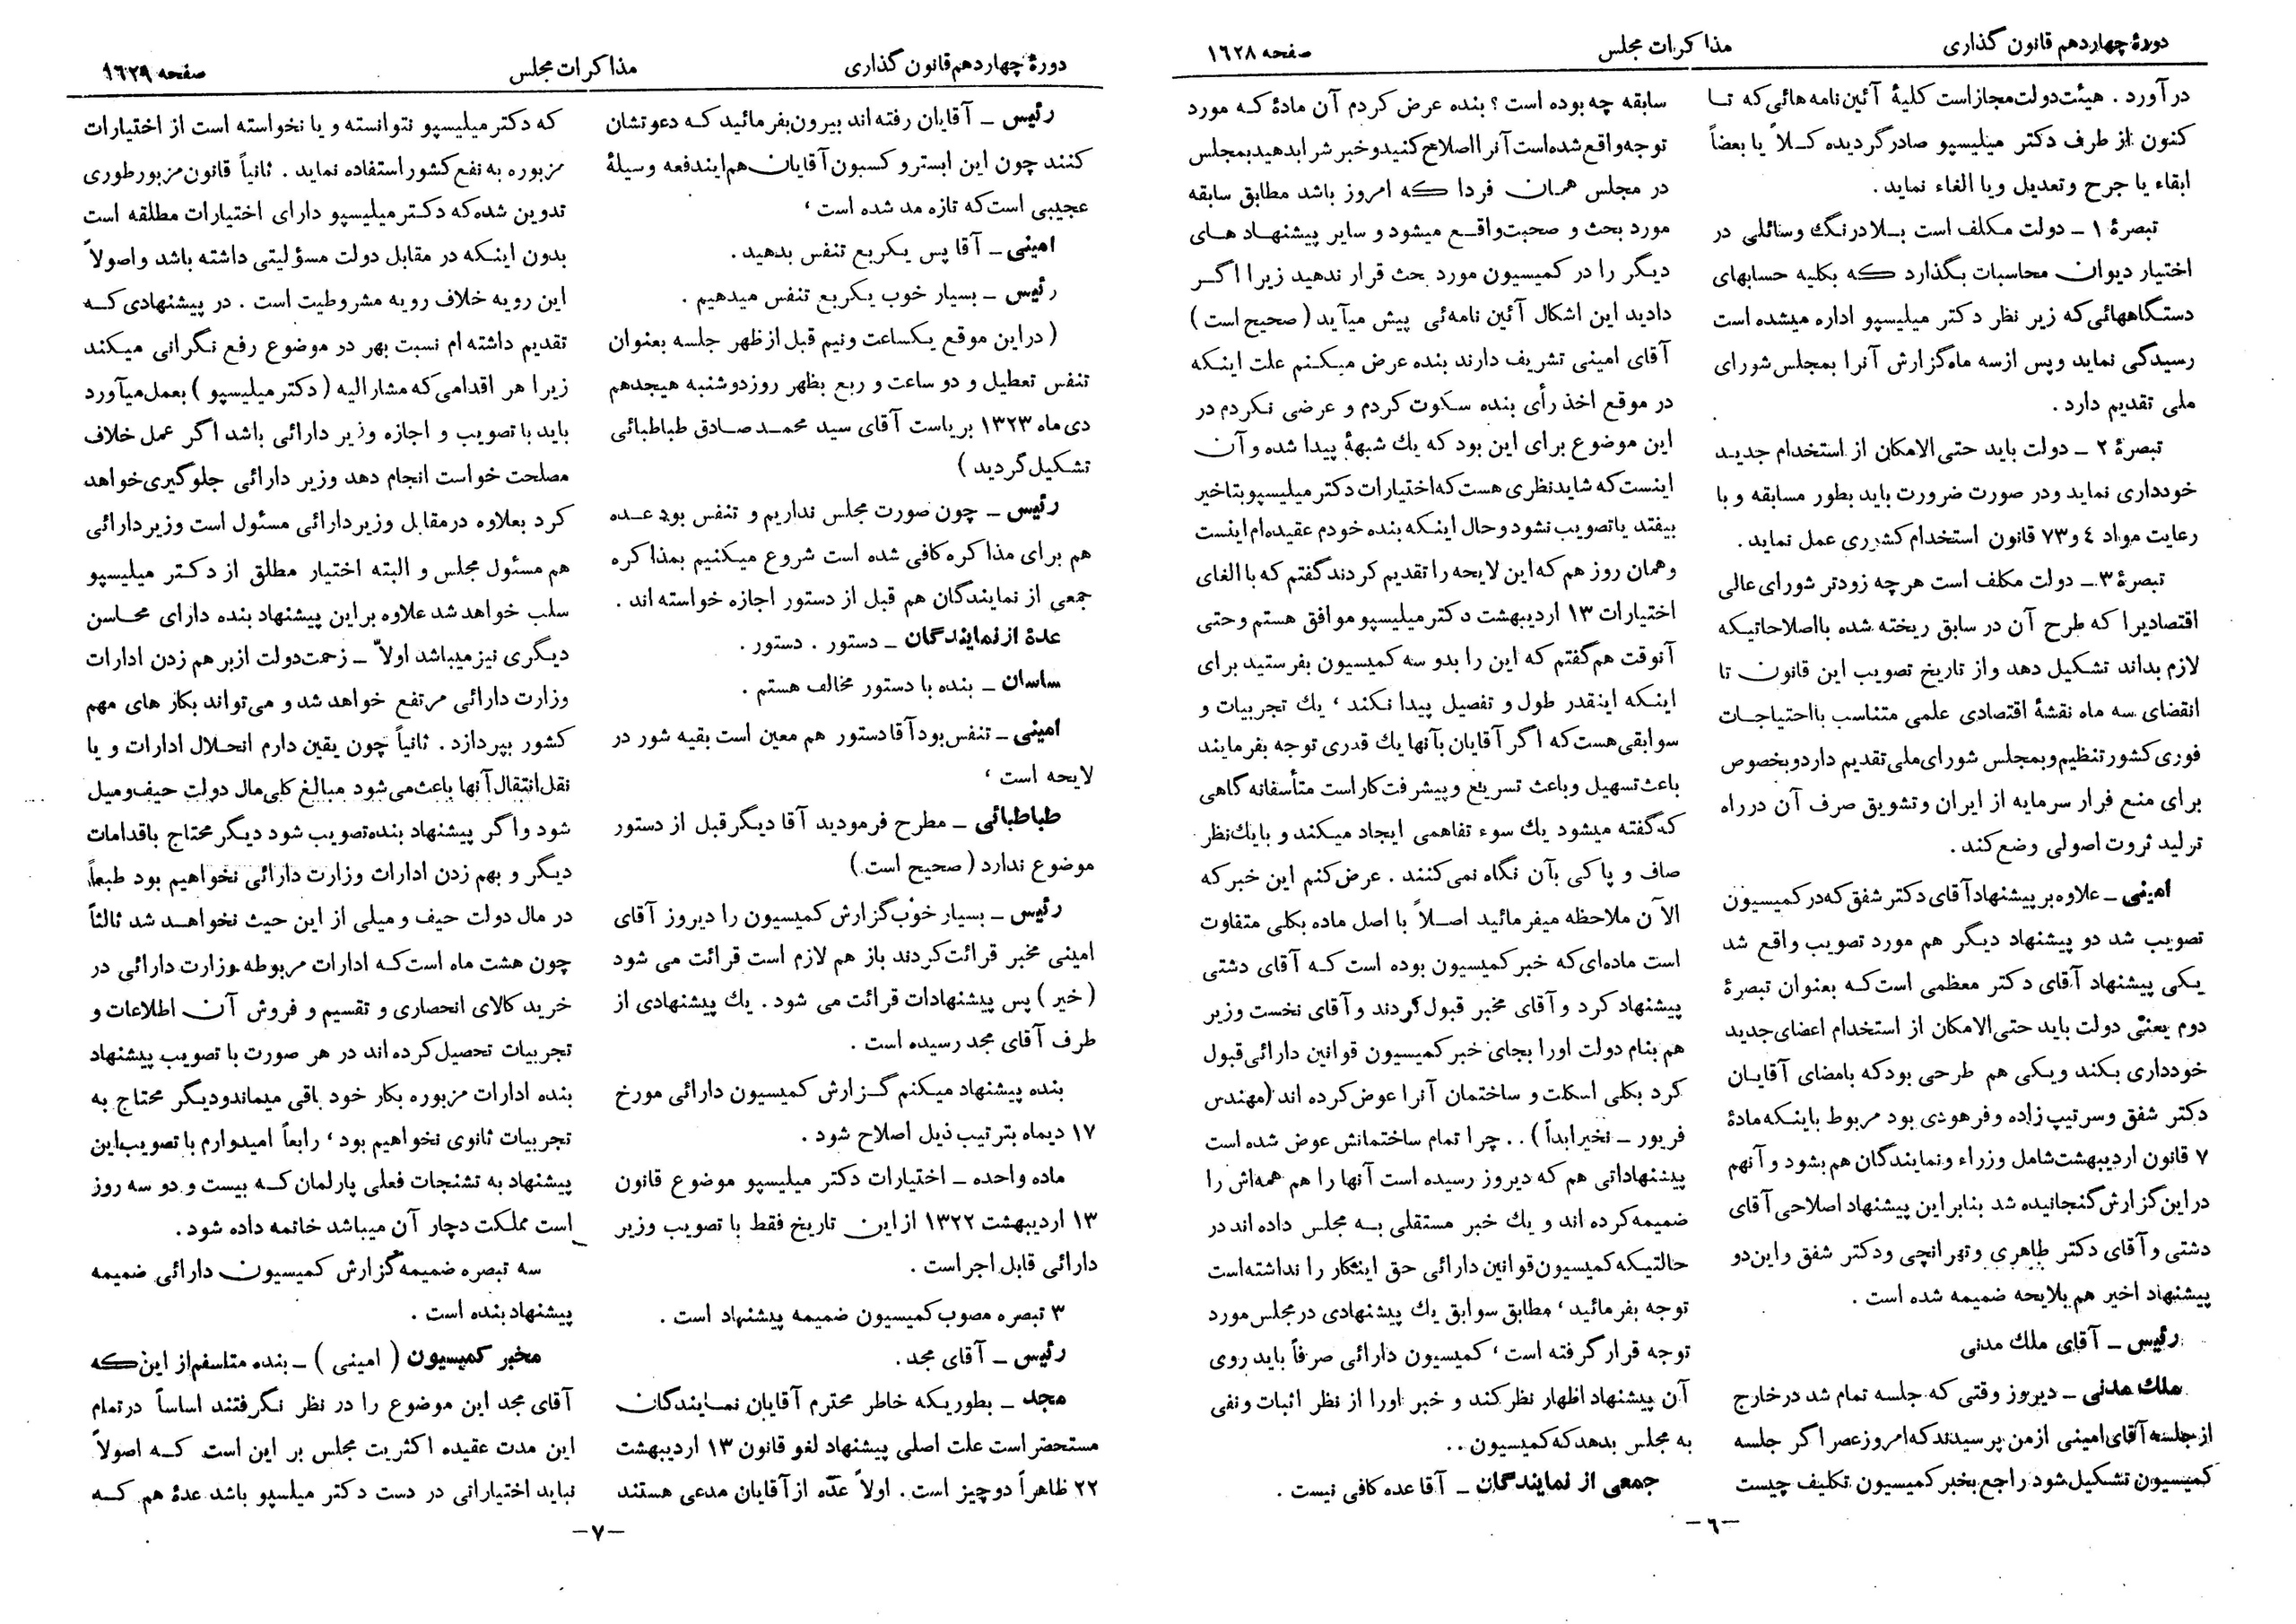 دورهٔ چهاردهم قانون گذاری
مذاکرات مجلس
صفحه ۱٦۲۸
در آورد . هیئت دولت مجاز است کلیهٔ آئین نامه هائی که تــا
کنون از طرف دکتر میلیسپو صادر گردیده کــلاً یا بعضاً
ابقاء یا جرح و تعدیل و یا الغاء نماید .
تبصرهٔ ۱ ــ دولت مکلف است بــلا درنگ وسائلی در
اختیار دیوان محاسبات بگذارد که بکلیه حسابهای
دستگاههائی که زیر نظر دکتر میلیسپو اداره میشده است
رسیدگی نماید و پس از سه ماه گزارش آنرا بمجلس شورای
ملی تقدیم دارد .
تبصرهٔ ۲ ــ دولت باید حتی الامکان از استخدام جدیــد
خودداری نماید و در صورت ضرورت باید بطور مسابقه و با
رعایت مواد ٤ و ۷۳ قانون استخدام کشوری عمل نماید .
تبصرهٔ ۳ ــ دولت مکلف است هر چه زودتر شورای عالی
اقتصادیرا که طرح آن در سابق ریخته شده بااصلاحاتیکه
لازم بداند تشکیل دهد و از تاریخ تصویب این قانون تا
انقضای سه ماه نقشهٔ اقتصادی علمی متناسب بااحتیاجــات
فوری کشور تنظیم و بمجلس شورای ملی تقدیم دارد و بخصوص
برای منع فرار سرمایه از ایران و تشویق صرف آن در راه
تولید ثروت اصولی وضع کند .
امینی ــ علاوه بر پیشنهاد آقای دکتر شفق که در کمیسیون
تصویب شد دو پیشنهاد دیگر هم مورد تصویب واقع شد
یکی پیشنهاد آقای دکتر معظمی است که بعنوان تبصرهٔ
دوم یعنی دولت باید حتی الامکان از استخدام اعضای جدید
خودداری بکند و یکی هم طرحی بود که بامضای آقایــان
دکتر شفق و سرتیپ زاده و فرهودی بود مربوط باینکه مادهٔ
۷ قانون اردیبهشت شامل وزراء و نمایندگان هم بشود و آنهم
در این گزارش گنجانیده شد بنابر این پیشنهاد اصلاحی آقای
دشتی و آقای دکتر طاهری و تهرانچی و دکتر شفق و این دو
پیشنهاد اخیر هم بلایحه ضمیمه شده است .
رئیس ــ آقای ملك مدنی
ملك مدنی ــ دیروز وقتی که جلسه تمام شد در خارج
از جلسه آقای امینی از من پرسیدند که امروز عصر اگر جلسه
کمیسیون تشکیل شود راجع بخبر کمیسیون تکلیف چیست
سابقه چه بوده است ؟ بنده عرض کردم آن مادهٔ کــه مورد
توجه واقع شده است آنرا اصلاح کنید و خبرش را بدهید بمجلس
در مجلس همان فردا که امروز باشد مطابق سابقه
مورد بحث و صحبت واقــع میشود و سایر پیشنهــاد هــای
دیگر را در کمیسیون مورد بحث قرار ندهید زیرا اگــر
دادید این اشکال آئین نامه‌ئی پیش میآید ( صحیح است )
آقای امینی تشریف دارند بنده عرض میکــنم علت اینکه
در موقع اخذ رأی بنده سکوت کردم و عرضی نکردم در
این موضوع برای این بود که یك شبههٔ پیدا شده و آن
اینست که شاید نظری هست که اختیارات دکتر میلیسپو بتاخیر
بیفتد یا تصویب نشود و حال اینکه بنده خودم عقیده‌ام اینست
و همان روز هم که این لایحه را تقدیم کردند گفتم که با الغای
اختیارات ۱۳ اردیبهشت دکتر میلیسپو موافق هستم و حتی
آنوقت هم گفتم که این را بدو سه کمیسیون بفرستید برای
اینکه اینقدر طول و تفصیل پیدا نکند ، یك تجربیات و
سوابقی هست که اگر آقایان بآنها یك قدری توجه بفرمایند
باعث تسهیل و باعث تسریع و پیشرفت کار است متأسفانه گاهی
که گفته میشود یك سوء تفاهمی ایجاد میکند و با یك نظر
صاف و پاکی بآن نگاه نمی‌کنند . عرض کنم این خبر که
الآن ملاحظه میفرمائید اصــلاً با اصل ماده بکلی متفاوت
است ماده‌ای که خبر کمیسیون بوده است کــه آقای دشتی
پیشنهاد کرد و آقای مخبر قبول کردند و آقای نخست وزیر
هم بنام دولت اورا بجای خبر کمیسیون قوانین دارائی قبول
کرد بکلی اسکلت و ساختمان آنرا عوض کرده اند (مهندس
فریور ــ نخیر ابداً ) . . چرا تمام ساختمانش عوض شده است
پیشنهاداتی هم که دیروز رسیده است آنها را هم همه‌اش را
ضمیمه کرده اند و یك خبر مستقلی بــه مجلس داده اند در
حالتیکه کمیسیون قوانین دارائی حق اینکار را نداشته است
توجه بفرمائید ، مطابق سوابق یك پیشنهادی در مجلس مورد
توجه قرار گرفته است ، کمیسیون دارائی صرفاً باید روی
آن پیشنهاد اظهار نظر کند و خبر اورا از نظر اثبات و نفی
به مجلس بدهد که کمیسیون . .
جمعی از نمایندگان ــ آقا عده کافی نیست .
ــ ٦ ــ
دورهٔ چهاردهم قانون گذاری
مذاکرات مجلس
صفحه ۱٦۲۹
رئیس ــ آقایان رفته اند بیرون بفرمائید کــه دعوتشان
کنند چون این ابستروکسیون آقایان هم ایندفعه وسیلهٔ
عجیبی است که تازه مد شده است ،
امینی ــ آقا پس یکربع تنفس بدهید .
رئیس ــ بسیار خوب یکربع تنفس میدهیم .
( در این موقع یکساعت و نیم قبل از ظهر جلسه بعنوان
تنفس تعطیل و دو ساعت و ربع بظهر روز دوشنبه هیجدهم
دی ماه ۱۳۲۳ بریاست آقای سید محمــد صــادق طباطبائی
تشکیل گردید )
رئیس ــ چون صورت مجلس نداریم و تنفس بود عــده
هم برای مذاکره کافی شده است شروع میکنیم بمذاکره
جمعی از نمایندگان هم قبل از دستور اجازه خواسته اند .
عدهٔ از نمایندگان ــ دستور . دستور .
ساسان ــ بنده با دستور مخالف هستم .
امینی ــ تنفس بود آقا دستور هم معین است بقیه شور در
لایحه است ،
طباطبائی ــ مطرح فرمودید آقا دیگر قبل از دستور
موضوع ندارد ( صحیح است )
رئیس ــ بسیار خوب گزارش کمیسیون را دیروز آقای
امینی مخبر قرائت کردند باز هم لازم است قرائت می شود
( خیر ) پس پیشنهادات قرائت می شود . یك پیشنهادی از
طرف آقای مجد رسیده است .
بنده پیشنهاد میکنم گــزارش کمیسیون دارائی مورخ
۱۷ دیماه بترتیب ذیل اصلاح شود .
ماده واحده ــ اختیارات دکتر میلیسپو موضوع قانون
۱۳ اردیبهشت ۱۳۲۲ از این تاریخ فقط با تصویب وزیر
دارائی قابل اجر است .
۳ تبصره مصوب کمیسیون ضمیمه پیشنهاد است .
رئیس ــ آقای مجد .
مجد ــ بطوریکه خاطر محترم آقایان نمــایندگان
مستحضر است علت اصلی پیشنهاد لغو قانون ۱۳ اردیبهشت
۲۲ ظاهراً دو چیز است . اولاً عدّه از آقایان مدعی هستند
که دکتر میلیسپو نتوانسته و یا نخواسته است از اختیارات
مزبوره به نفع کشور استفاده نماید . ثانیاً قانون مزبور طوری
تدوین شده که دکتر میلیسپو دارای اختیارات مطلقه است
بدون اینکه در مقابل دولت مسؤلیتی داشته باشد و اصولاً
این رویه خلاف رویه مشروطیت است . در پیشنهادی کــه
تقدیم داشته ام نسبت بهر در موضوع رفع نگرانی میکند
زیرا هر اقدامی که مشارالیه ( دکتر میلیسپو ) بعمل میآورد
باید با تصویب و اجازه وزیر دارائی باشد اگر عمل خلاف
مصلحت خواست انجام دهد وزیر دارائی جلوگیری خواهد
کرد بعلاوه در مقابل وزیر دارائی مسئول است وزیر دارائی
هم مسئول مجلس و البته اختیار مطلق از دکتر میلیسپو
سلب خواهد شد علاوه بر این پیشنهاد بنده دارای محــاسن
دیگری نیز میباشد اولاً ــ زحمت دولت از بر هم زدن ادارات
وزارت دارائی مرتفع خواهد شد و می‌تواند بکار های مهم
کشور بپردازد . ثانیاً چون یقین دارم انحــلال ادارات و یا
نقل انتقال آنها باعث می‌شود مبالغ کلی مال دولت حیف و میل
شود و اگر پیشنهاد بنده تصویب شود دیگر محتاج باقدامات
دیگر و بهم زدن ادارات وزارت دارائی نخواهیم بود طبعاً
در مال دولت حیف و میلی از این حیث نخواهــد شد ثالثاً
چون هشت ماه است کــه ادارات مربوطه بوزارت دارائی در
خرید کالای انحصاری و تقسیم و فروش آن اطلاعات و
تجربیات تحصیل کرده اند در هر صورت با تصویب پیشنهاد
بنده ادارات مزبوره بکار خود باقی میماند و دیگر محتاج به
تجربیات ثانوی نخواهیم بود ، رابعاً امیدوارم با تصویب این
پیشنهاد به تشنجات فعلی پارلمان کــه بیست و دو سه روز
است مملکت دچار آن میباشد خاتمه داده شود .
سه تبصره ضمیمه گزارش کمیسیون دارائی ضمیمه
پیشنهاد بنده است .
مخبر کمیسیون ( امینی ) ــ بنده متاسفم از این که
آقای مجد این موضوع را در نظر نگرفتند اساساً در تمام
این مدت عقیده اکثریت مجلس بر این است کــه اصولاً
نباید اختیاراتی در دست دکتر میلسپو باشد عدهٔ هم کــه
ــ ۷ ــ